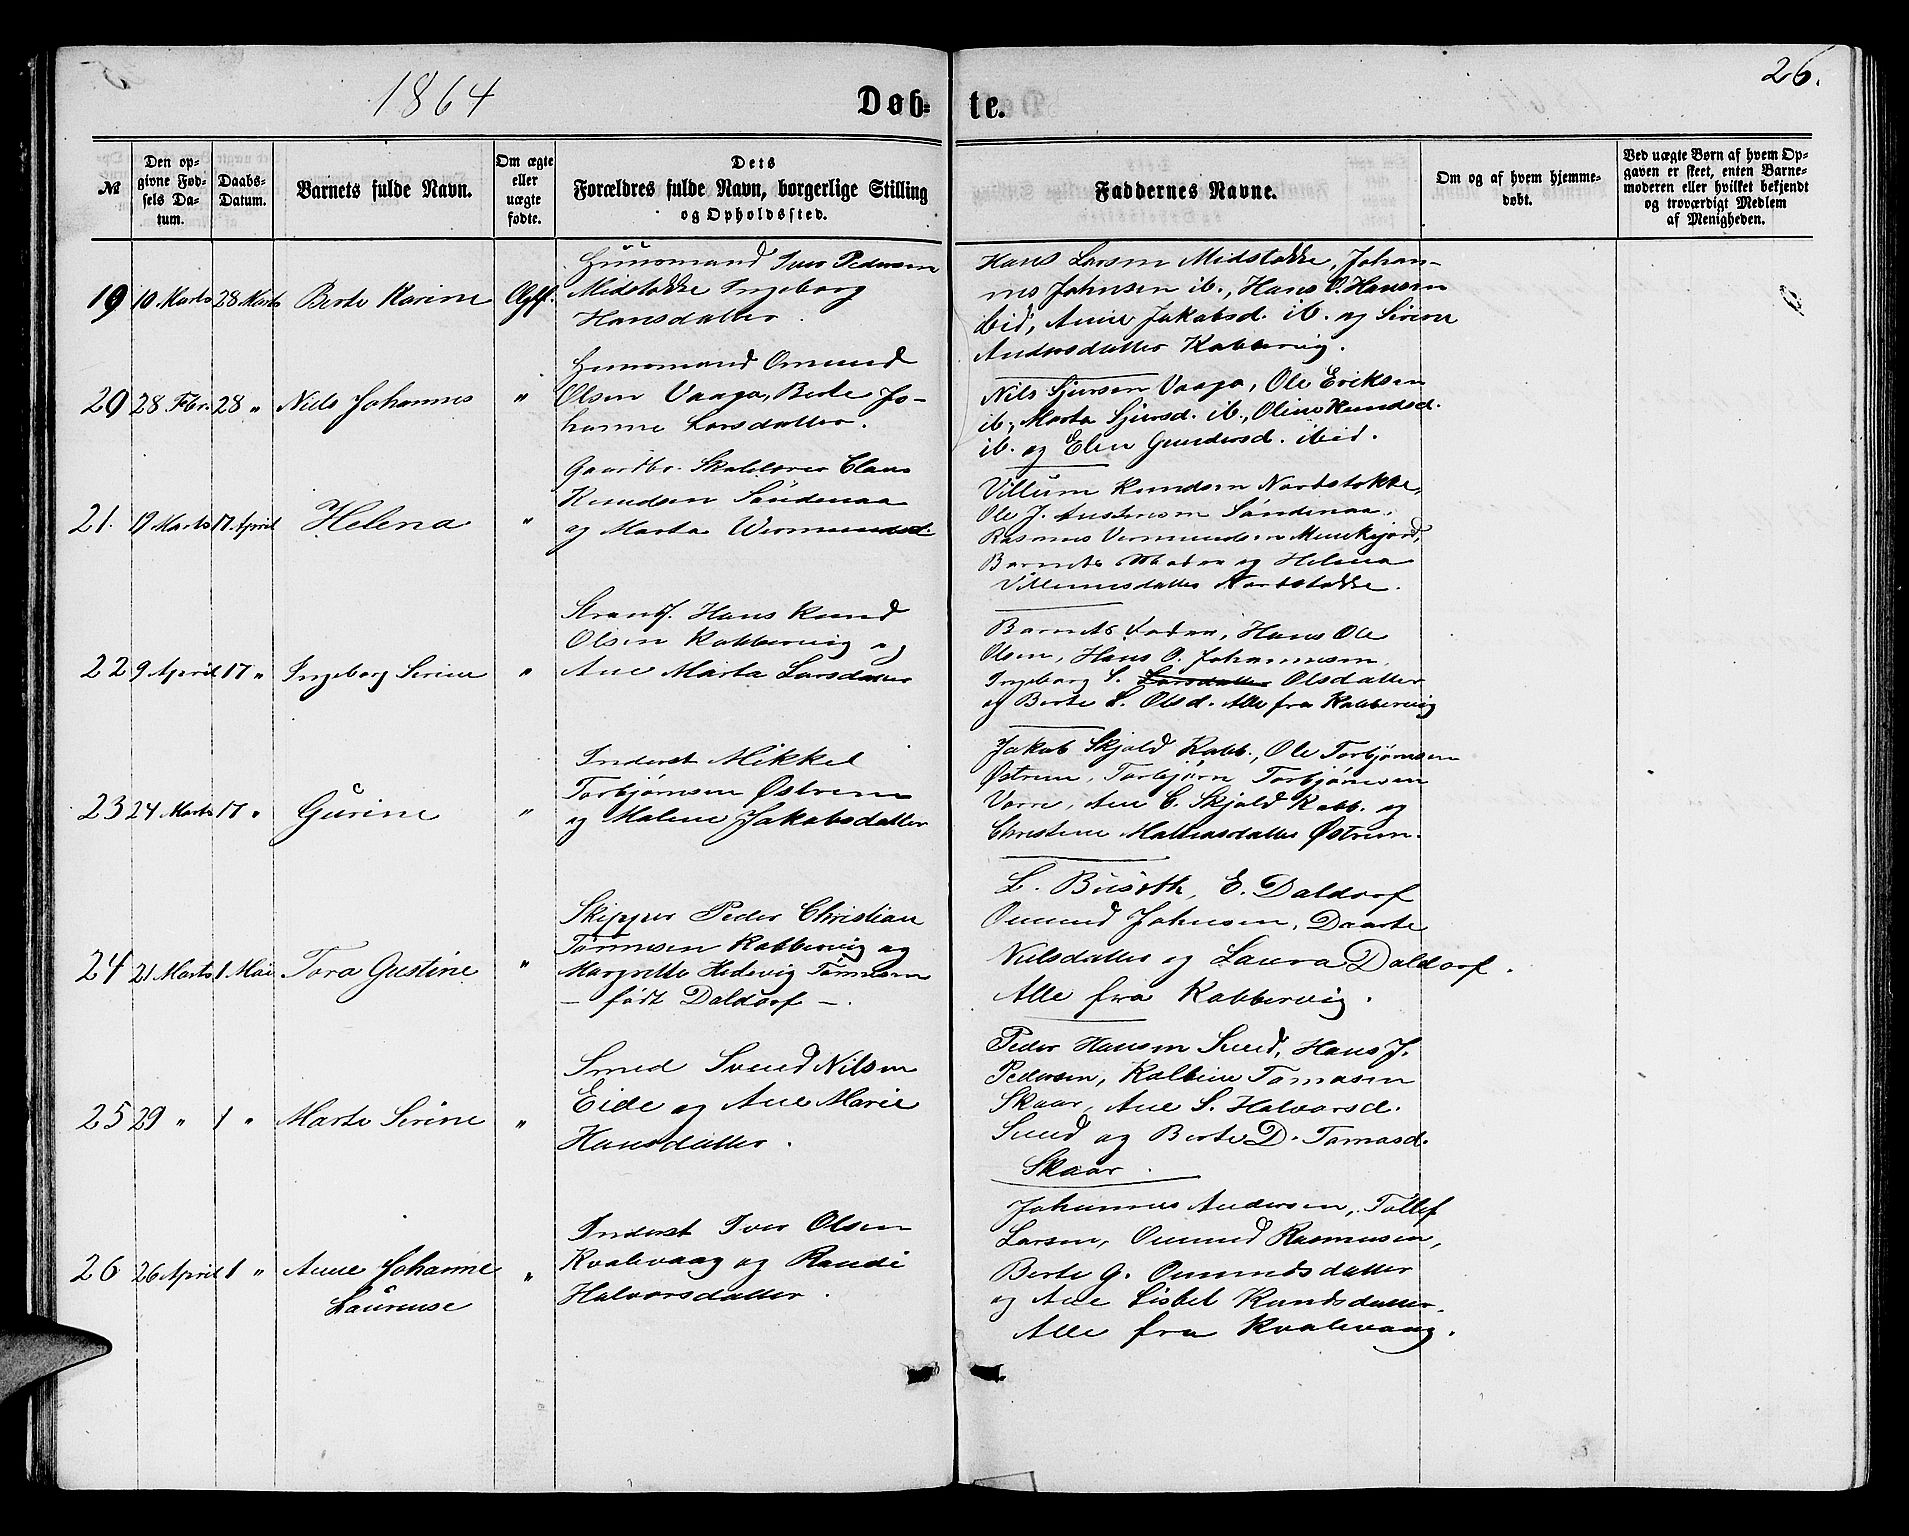 1864
Døb-
te.
26.
№
Den op-
givne Fød-
sels Da-
tum.
Daabs-
Datum.
Barnets fulde Navn.
Om ægte
eller
uægte
fødte.
Dets
Forældres fulde Navn, borgerlige Stilling
og Opholdssted.
Faddernes Navne.
Om og af hvem hjemme-
døbt.
Ved uægte Børn af hvem Op-
gaven er skeet, enten Barne-
moderen eller hvilket bekjendt
og troværdigt Medlem
af Menigheden.
19 10 Marts 28 Marts Berte Karine
Huusmand Iver Pedersen
Midstokke Ingeborg
Hansdatter.
Hans Larsen Midstokke, Johan-
nes Johnsen ib., Hans O. Hansen
ibid, Anne Jakobsd. ib. og Serine
Andersdatter Kobbervig.
20 28 Febr. 28 " Niels Johannes "
Huusmand Omund
Olsen Vaaga, Berte Jo-
hanne Larsdatter.
Nils Sjursen Vaaga, Ole Eriksen
ib., Marta Sjursd. ib., Oline Knudsd.
ib. og Elen Gundersd. ibid.
21. 19 Marts 17 April Helena "
Gaardbr. Skoleærer Claus
Knudsen Sündenaa
og Marta Wermundsd.
Villum Knudsen Nordstokke,
Ole J. Austensen Søndenaa,
Rasmus Vermundsen Munkejord,
Barnets Moder og Helena
Villumsdatter Nordstokke.
22 9 April 17 " Ingeborg Serine "
Strands. Hans Knud
Olsen Kobbervig og
Ane Marta Larsdatter
Barnets Fader, Hans Ole
Olsen, Hans O. Johannesen,
Ingeborg S. Larsdatter Olsdatter
og Berte S. Olsd. Alle fra Kobbervig
23 24 Marts 17 " Gurine "
Inderst Mikkel
Torbjørnsen Østrem
og Malene Jakobsdatter
Jakob Skjold Kobb., Ole Torbjørnsen
Østrem, Torbjørn Torbjørnsen
Vorre, Ane C. Skjold Kobb. og
Christine Mathiasdatter Østrem.
24 21 Marts 1 Mai Tora Gustine "
Skipper Peder Christian
Tønnesen Kobbervig og
Margrethe Hedevig Tønnesen
— født Daldorf —.
L. E. Daldorf
Omund Johnsen, Daarte
Nielsdatter og Laura Daldorf.
Alle fra Kobbervig.
25 29 " 1 " Marte Serine "
Smed Svend Nilsen
Eide og Ane Marie
Hansdatter.
Peder Hansen Sund, Hans J.
Pedersen, Kolbein Tomasen
Skaar, Ane S. Halvorsd.
Sund og Berte D. Tomasd.
Skaar.
26 26 April 1 " Anne Johanne "
Laurense
Inderst Iver Olsen
Kvalevaag og Randi
Halvorsdatter.
Johannes Andersen, Tollef
Larsen, Omund Rasmusen,
Berte G. Omundsdatter
og Ane Lisbet Knudsdatter.
Alle fra Kvalevaag.